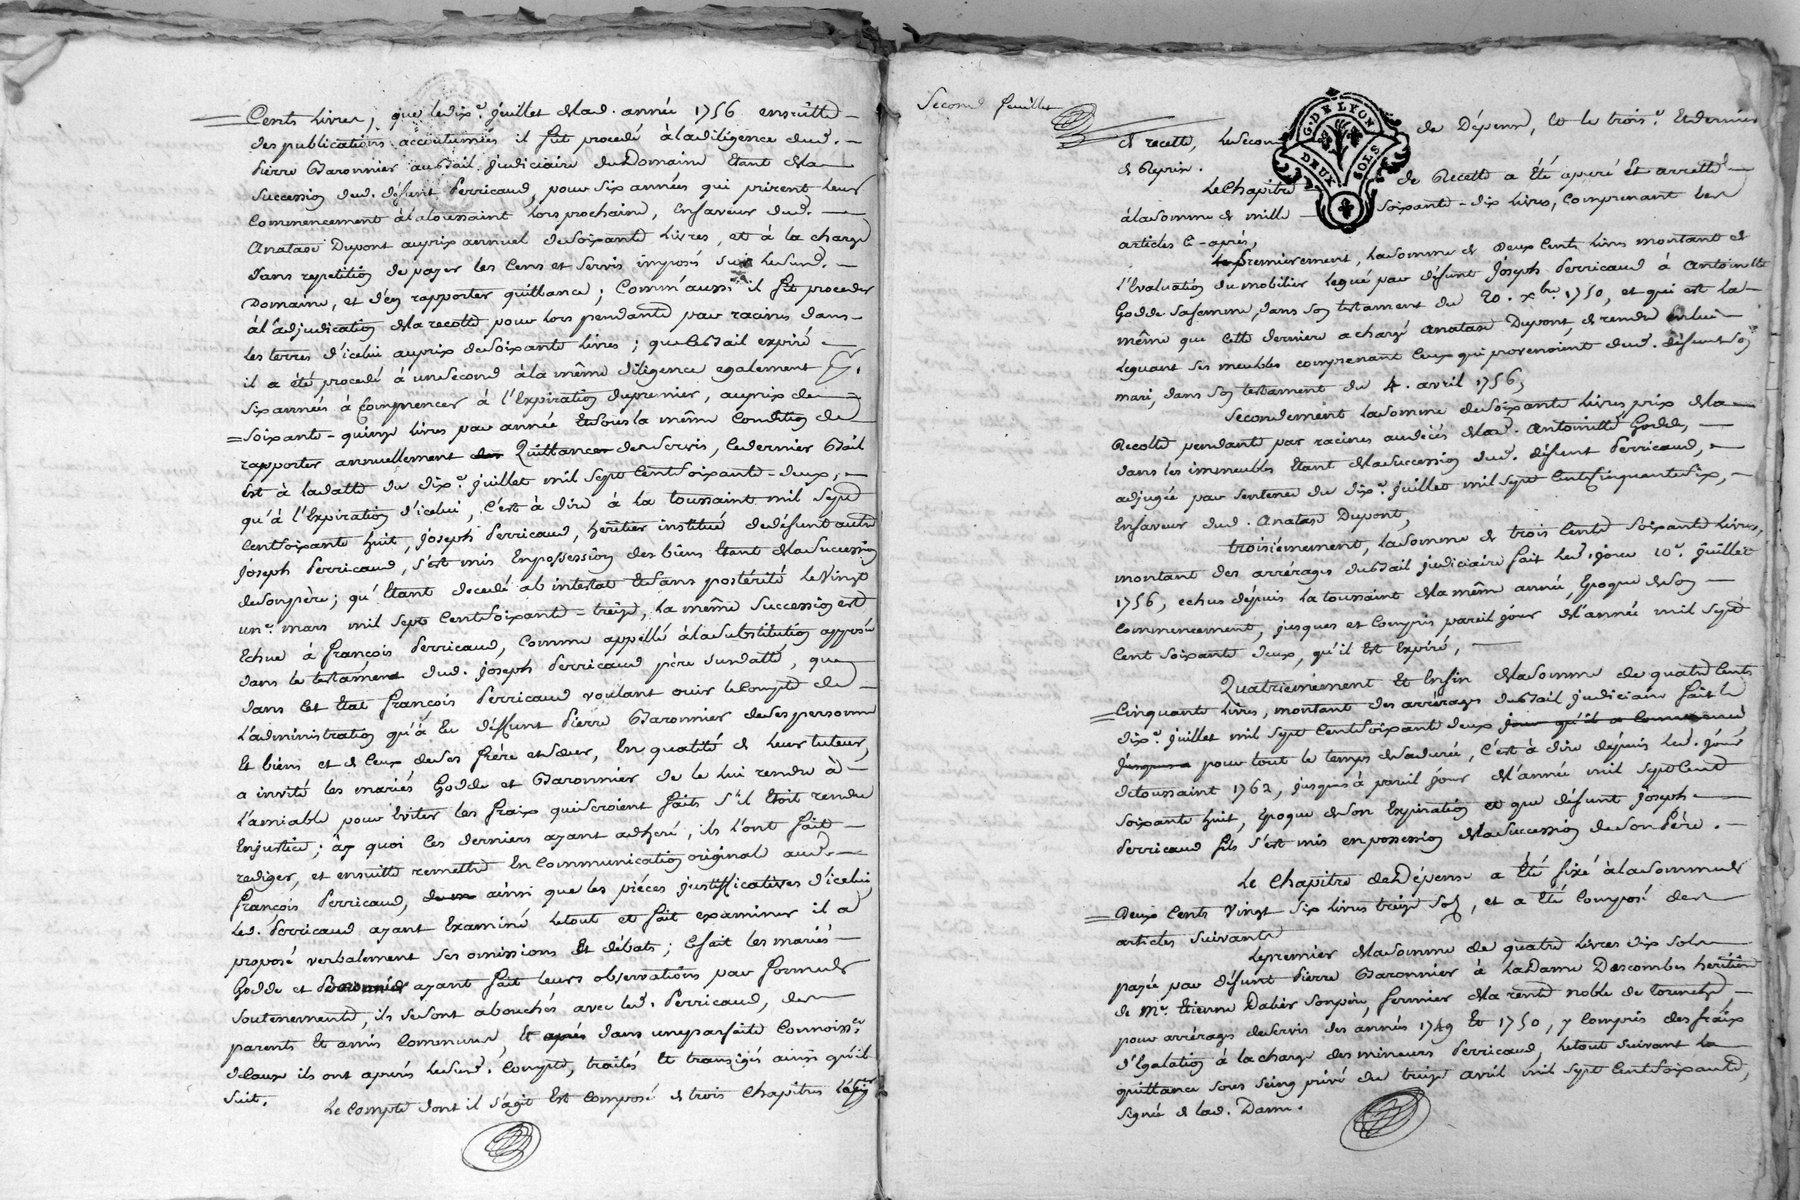 Cents Livres, que le dix.e juillet de lad. année 1756 ensuitte
des publications accoutumées il fut procedé à la diligence dud.
Pierre Baronnier au bail judiciaire du Domaine étant de la
Succession dud. défunt Perricaud, pour six années qui prirent leur
Commencement à la toussaint lors prochaine, En faveur dud.
Anataze Dupont au prix annuel de soixante Livres, et à la charge
sans repetition de payer les Cens et servis imposés sur le susd.
Domaine, et d'en rapporter quittance; Comm'aussi il fut procedé
à l'adjudication de la recolte pour lors pendante par racines dans
les terres d'icelui au prix de soixante livres; que le bail expiré
il a été procedé à un second à la même diligence egalement p.r
six années à Commencer à l'Expiration du premier, au prix de
soixante-quinze livres par année et sous la même Condition de
rapporter annuellement Quittance des servis, le dernier Bail
Est à la datte du dix.e juillet mil sept Cent soixante-deux,
qu'à l'Expiration d'icelui, C'est à dire à la toussaint mil sept
Cent soixante huit, Joseph Perricaud, héritier institué de défunt autre
Joseph Perricaud, s'est mis En possession des biens Etant de la succession
de son père; qu'Etant decedé ab intestat et sans postérité le Vingt
un.e mars mil sept Cent soixante-treize, La même succession est
Echue à françois Perricaud, Comme appellé à la substitution apposée
dans le testament dud. Joseph Perricaud père susdatté, que
dans Cet Etat françois Perricaud voulant ouir le Compte de
L'administration qu'à Eu deffunt Pierre Baronnier de ses personne
Et biens et de Ceux de ses frère et sœur, En qualité de Leur tuteur,
a invité les mariés Godde et Baronnier de le lui rendre à
L'amiable pour Eviter les fraix qui seroient faits s'il Etoit rendu
En justice; à quoi Ces derniers ayant adheré, ils l'ont fait
rediger, et ensuitte remettre En Communication original aud.
françois Perricaud, ainsi que les piéces justifficatives d'icelui,
Led. Perricaud ayant Examiné le tout et fait examiner il a
proposé verbalement ses omissions Et débats; Et fait les mariés
Godde et Baronnier ayant fait leurs observations par forme de
soutenements, ils se sont abouchés avec led. Perricaud, des
parents Et amis Communs, Et après dans une parfaite Connoiss.ce
de Caux ils ont apurés le susd. Compte, traités Et transigés ainsi qu'il
suit.
Le Compte dont il s'agit Est Composé de trois Chapitres
Second feuillet
G. DE LYON
DEUX SOLS
de recette, le second de Dépense, Et le trois.e Et dernier
de Reprise.
Le Chapitre de Recette a Eté apuré Et arretté
à la somme de mille soixante-dix livres, Comprenant les
articles Ci-après,
Premierement, la somme de deux Cents livres montant de
l'Evaluation du mobilier legué par défunt Joseph Perricaud à Antoinette
Godde sa femme, dans son testament du 20. xbre 1750, et qui est la
même que Cette derniere a chargé Anataze Dupont, de rendre en lui
leguant ses meubles comprenant Ceux qui provenoient dud. défunt son
mari, dans son testament du 4. avril 1756,
Secondement la somme de soixante livres prix de la
Recolte pendante par racines au décés de lad. Antoinette Godde,
dans les immeubles Etant de la succession dud. défunt Perricaud,
adjugée par sentence du dix.e juillet mil sept Cent Cinquante six,
En faveur dud. Anataze Dupont,
troisiemement, la somme de trois Cents soixante livres,
montant des arrérages du bail judiciaire fait led. jour 10.e juillet
1756, echus dépuis la toussaint de la même année, Epoque de son
Commencement, jusques et Compris pareil jour de l'année mil sept
Cent soixante deux, qu'il Est Expiré,
Quatriemement Et Enfin de la somme de quatre Cents
Cinquante livres, montant des arrérages du bail judiciaire fait le
dix.e juillet mil sept Cent soixante deux
pour tout le temps de sa durée, C'est à dire dépuis led. jour
de toussaint 1762, jusques à pareil jour de l'année mil sept Cent
soixante huit, Epoque de son Expiration et que défunt Joseph
Perricaud fils s'est mis en possession de la succession de son Père.
Le Chapitre de Dépense a Eté fixé à la somme de
Deux Cents Vingt six livres treize sols, et a Eté Composé des
articles suivants
Le premier de la somme de quatre livres dix sols
payée par défunt Pierre Baronnier à la Dame Descombes heritiere
de M.e Etienne Dalier son père, fermier de la rente noble de
pour arrérages de servis des années 1749 Et 1750, y Compris des fraix
d'Egalation à la charge des mineurs Perricaud, le tout suivant la
quittance sous seing privé du treize avril mil sept Cent soixante,
signée de lad. Dame.